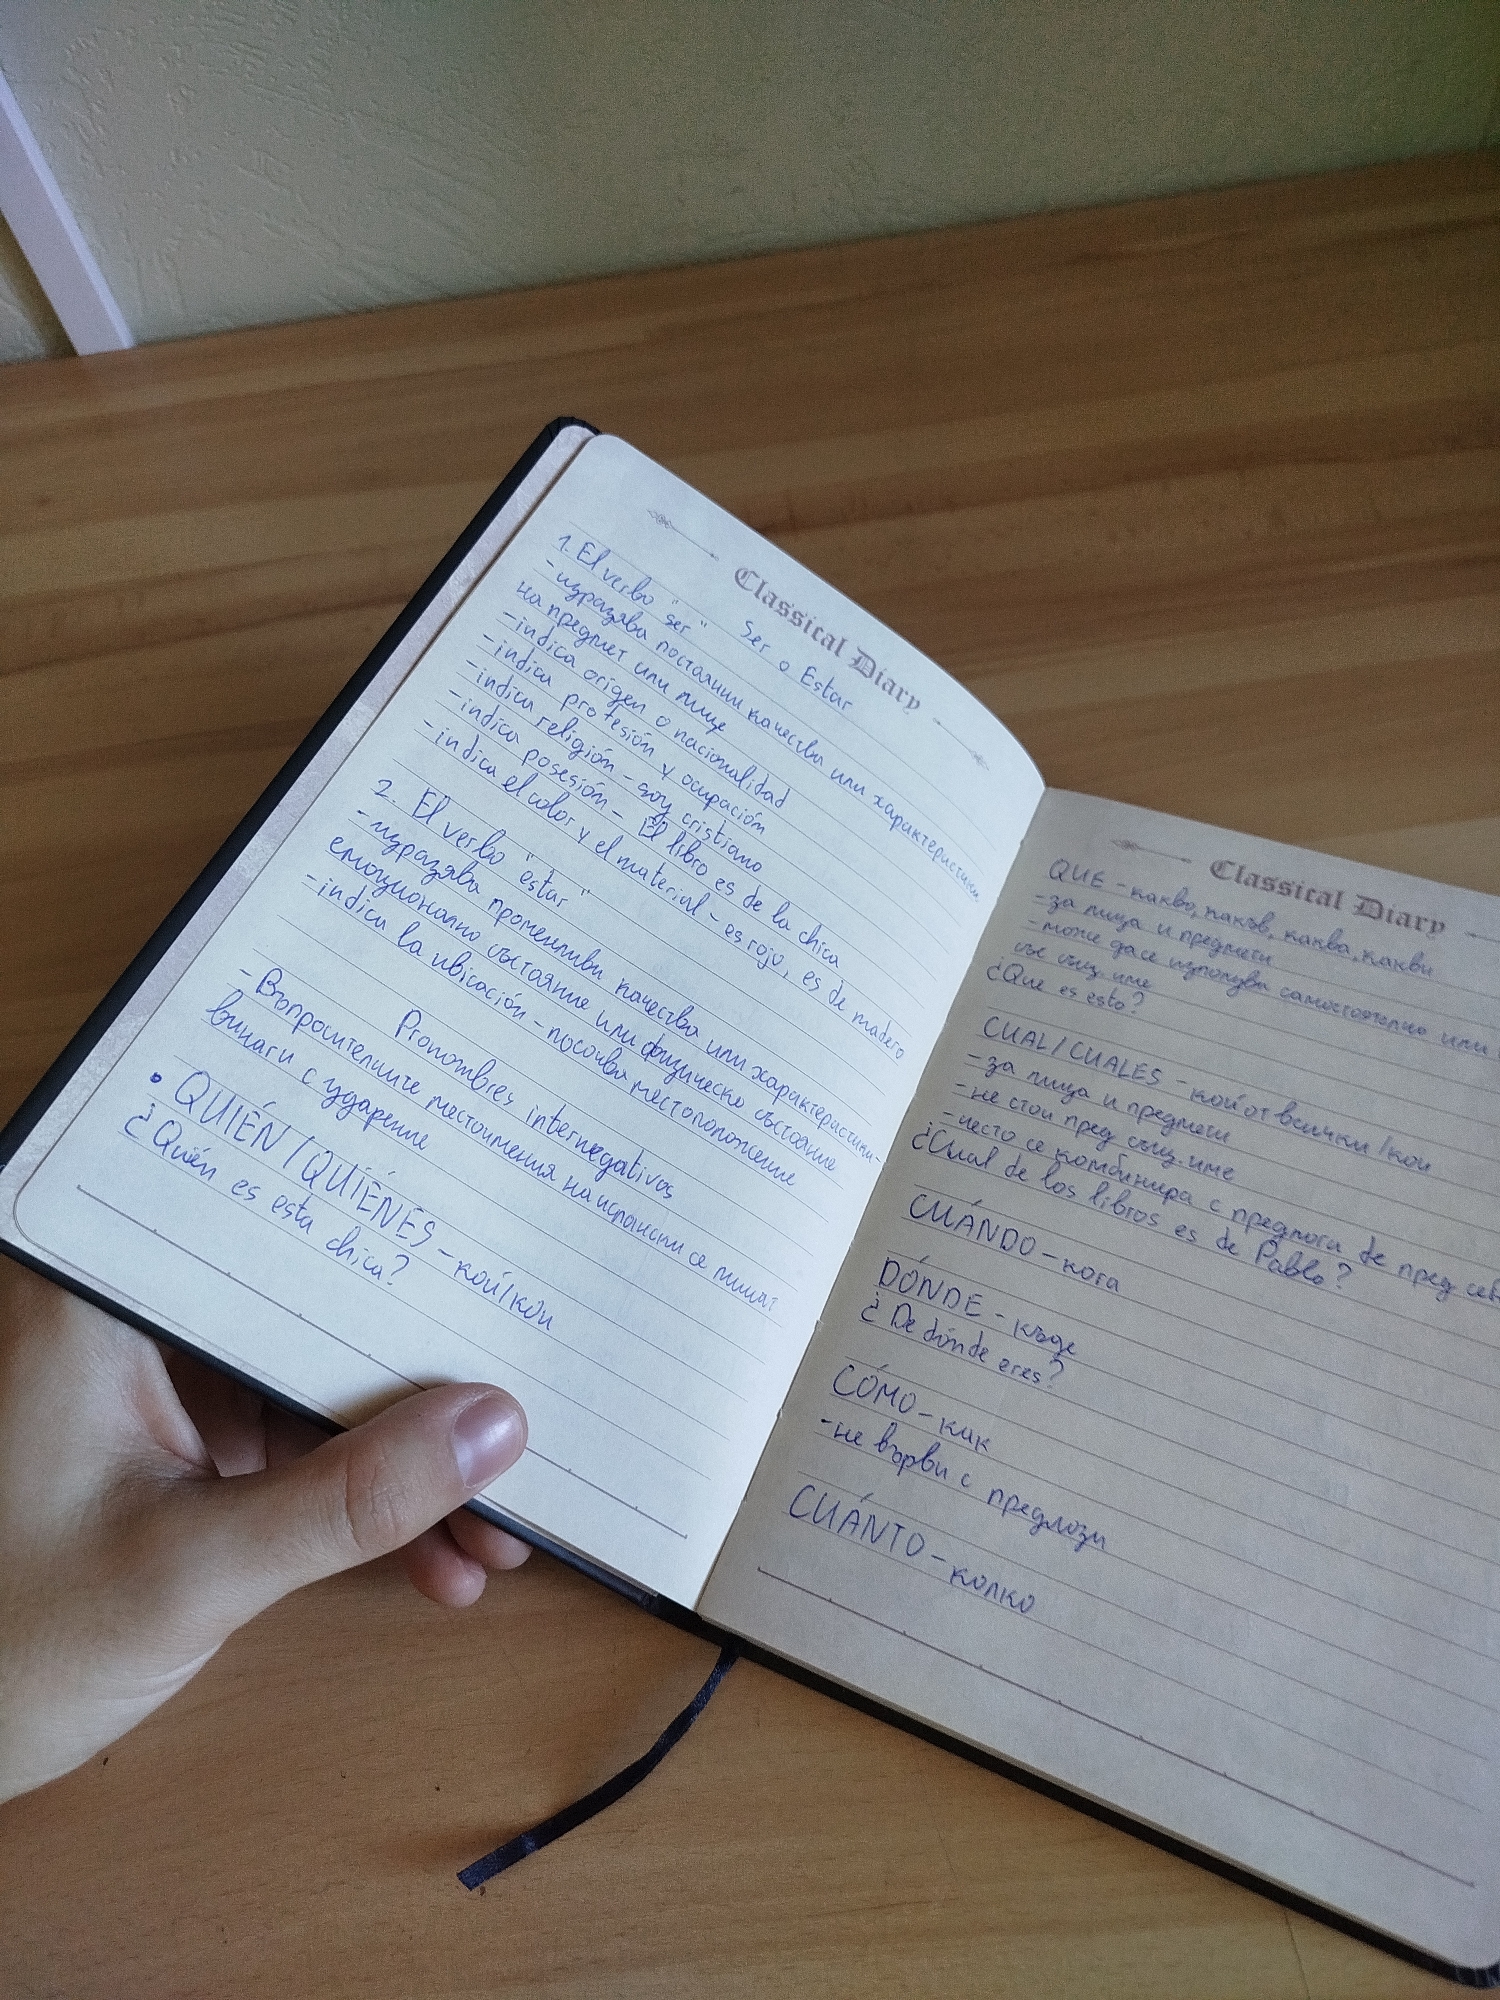 Classical Diary
Ser o Estar
1. El verbo "ser"
- изразява постоянни качества или характеристики
на предмет или лице
- indica origen o nacionalidad
- indica profesión y ocupación
- indica religión - soy cristiano
- indica posesión - El libro es de la chica
- indica el color y el material - es rojo, es de madera
2. El verbo "estar"
- изразява променливи качества или характеристики-
емоционално състояние или физическо състояние
- indica la ubicación - посочва местоположение
Pronombres internegativos
- Въпросителните местоимения на испански се пишат
винаги с ударение
• QUIÉN / QUIÉNES - кой/кои
¿Quién es esta chica?
Classical Diary
QUE - какво, какъв, каква, какви
- за лица и предмети
- може да се използва самостоятелно или
със същ. име
¿Que es esto?
CUAL / CUALES - кой от всички / кои
- за лица и предмети
- не стои пред същ. име
- често се комбинира с предлога de пред себе
¿Cual de los libros es de Pablo?
CUÁNDO - кога
DÓNDE - къде
¿De dónde eres?
CÓMO - как
- не върви с предлози
CUÁNTO - колко